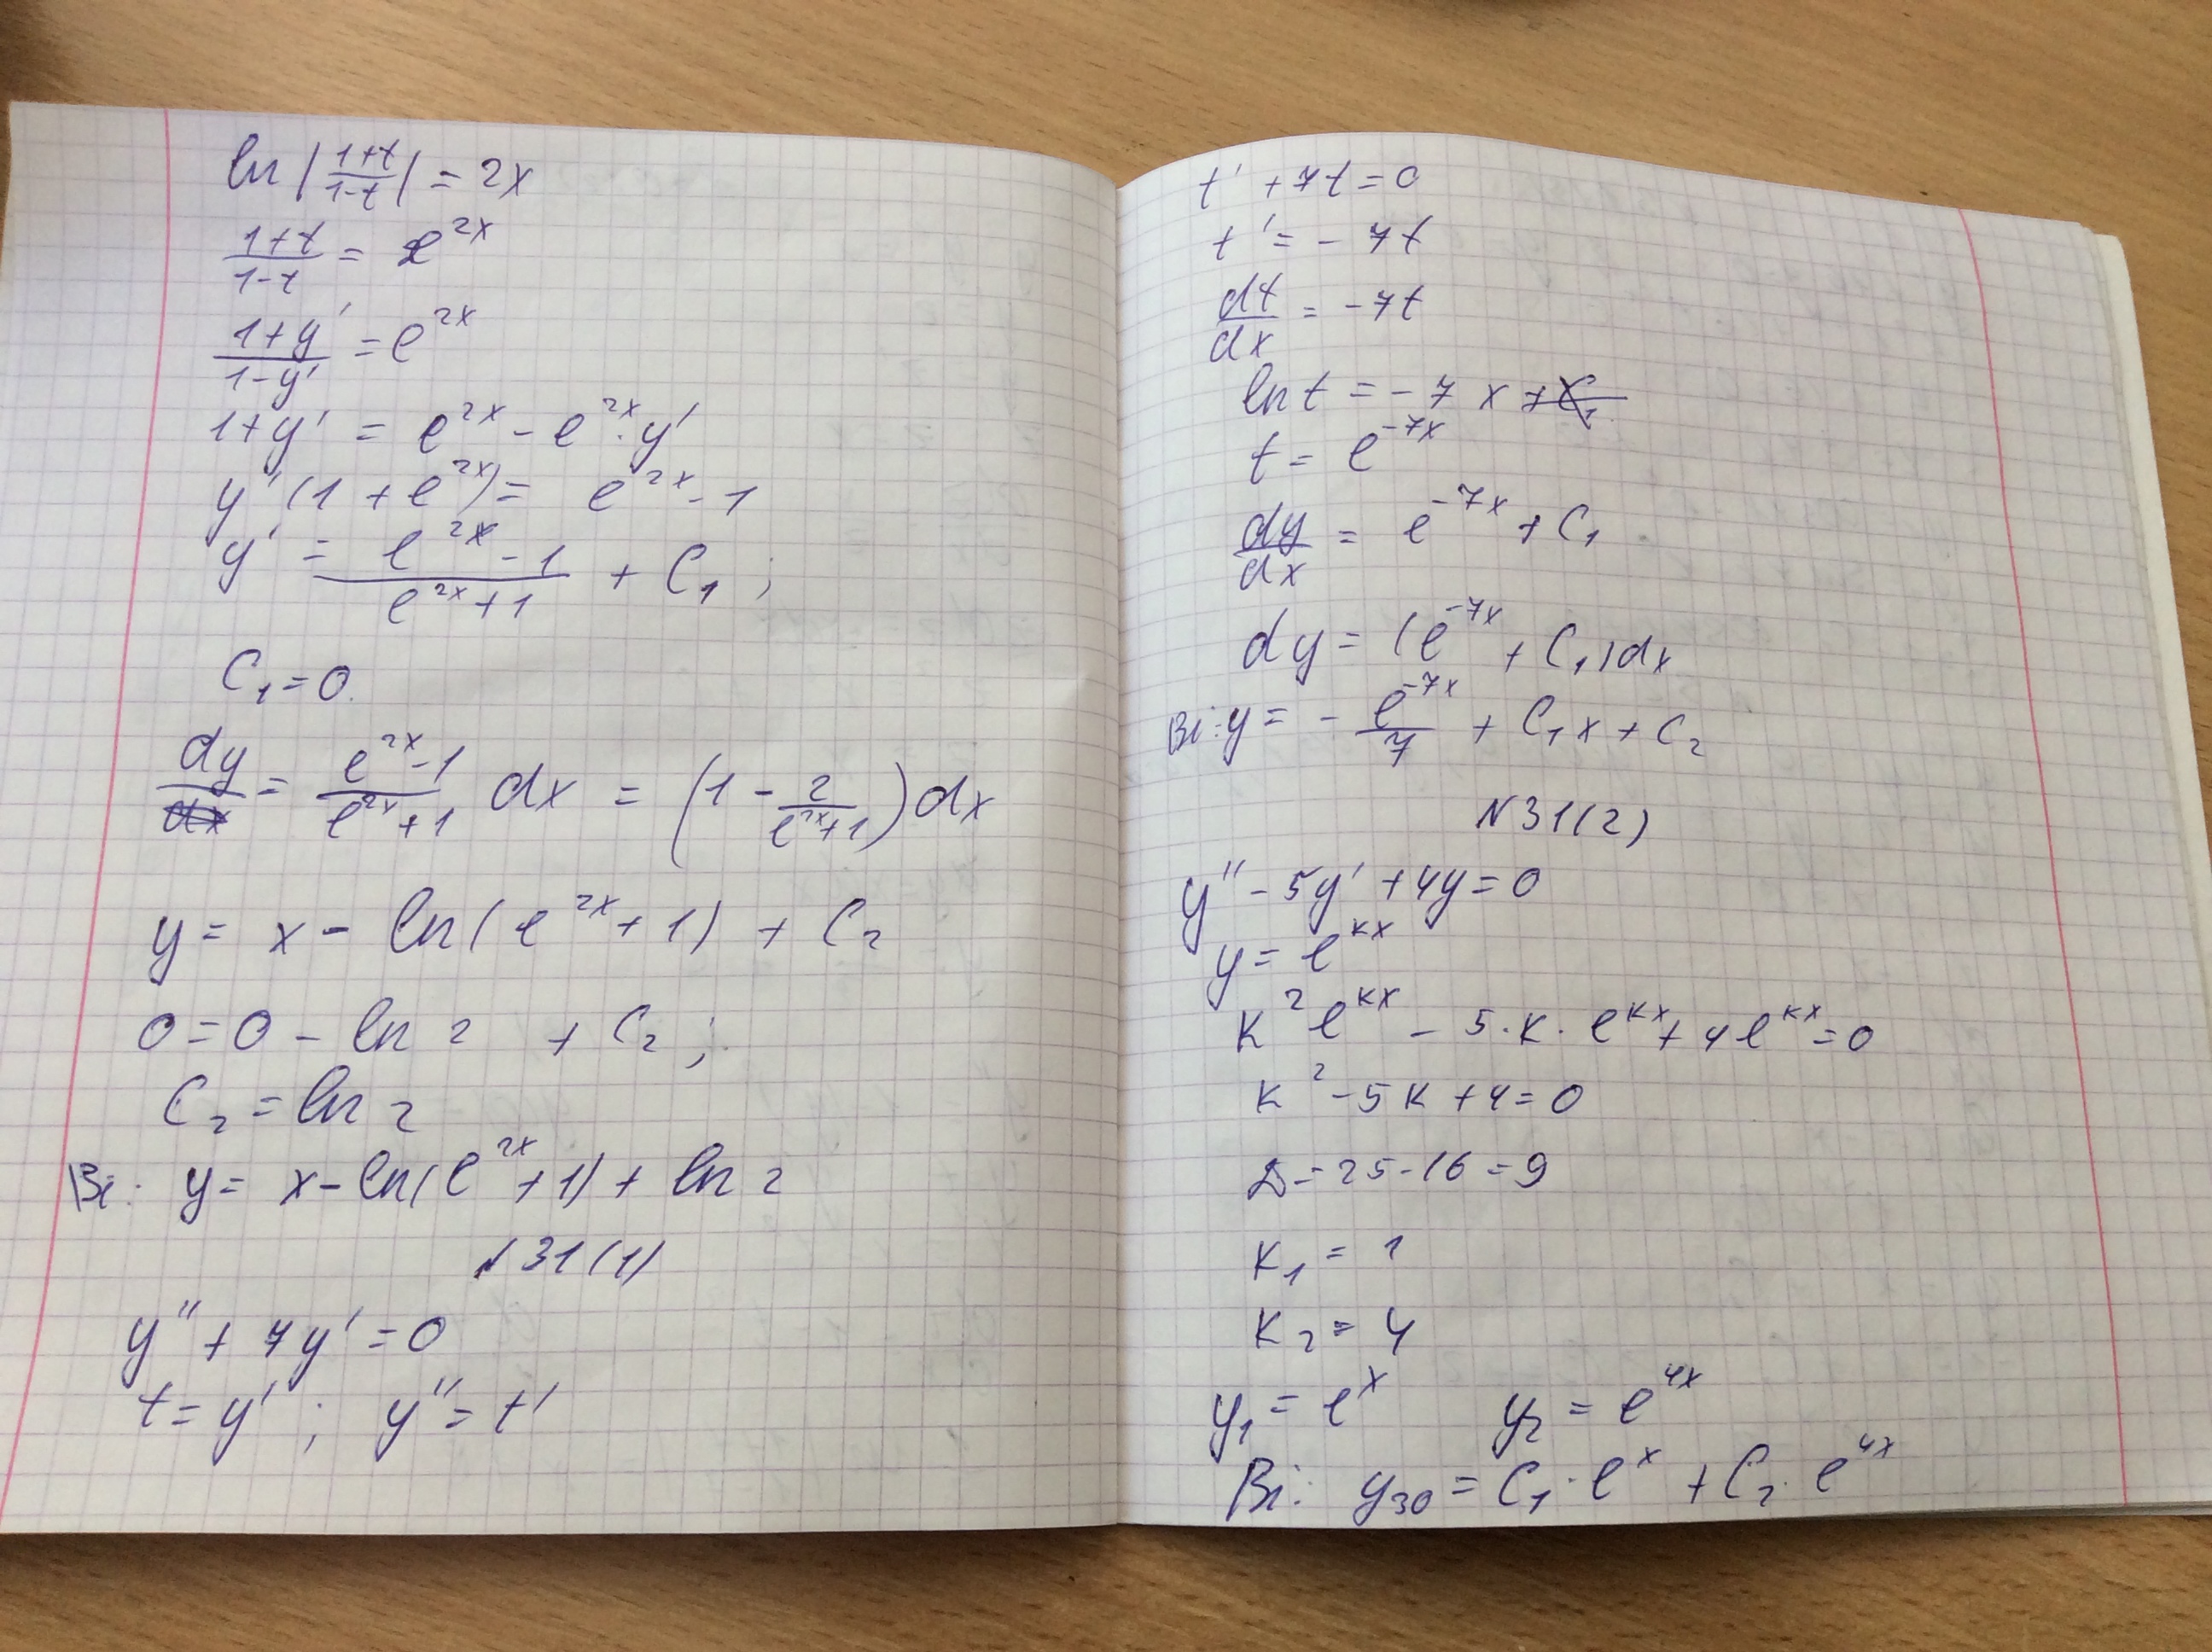 ln |(1+t)/(1-t)| = 2x
(1+t)/(1-t) = e^{2x}
(1+y')/(1-y') = e^{2x}
1+y' = e^{2x} - e^{2x} · y'
y'(1+e^{2x}) = e^{2x} - 1
y' = (e^{2x} - 1)/(e^{2x} + 1) + C₁ ;
C₁ = 0.
dy/dx = (e^{2x} - 1)/(e^{2x} + 1) dx = (1 - 2/(e^{2x}+1)) dx
y = x - ln(e^{2x} + 1) + C₂
0 = 0 - ln 2 + C₂ ;
C₂ = ln 2
Ві: y = x - ln(e^{2x} + 1) + ln 2
№31(1)
y'' + 7y' = 0
t = y' ; y'' = t'
t' + 7t = 0
t' = - 7t
dt/dx = - 7t
ln t = - 7x + C₁
t = e^{-7x}
dy/dx = e^{-7x} + C₁
dy = (e^{-7x} + C₁) dx
Ві: y = - e^{-7x}/7 + C₁x + C₂
N31(2)
y'' - 5y' + 4y = 0
y = e^{kx}
k² e^{kx} - 5·k·e^{kx} + 4e^{kx} = 0
k² - 5k + 4 = 0
D = 25 - 16 = 9
k₁ = 1
k₂ = 4
y₁ = e^{x} y₂ = e^{4x}
Ві: y₃₀ = C₁·e^{x} + C₂·e^{4x}